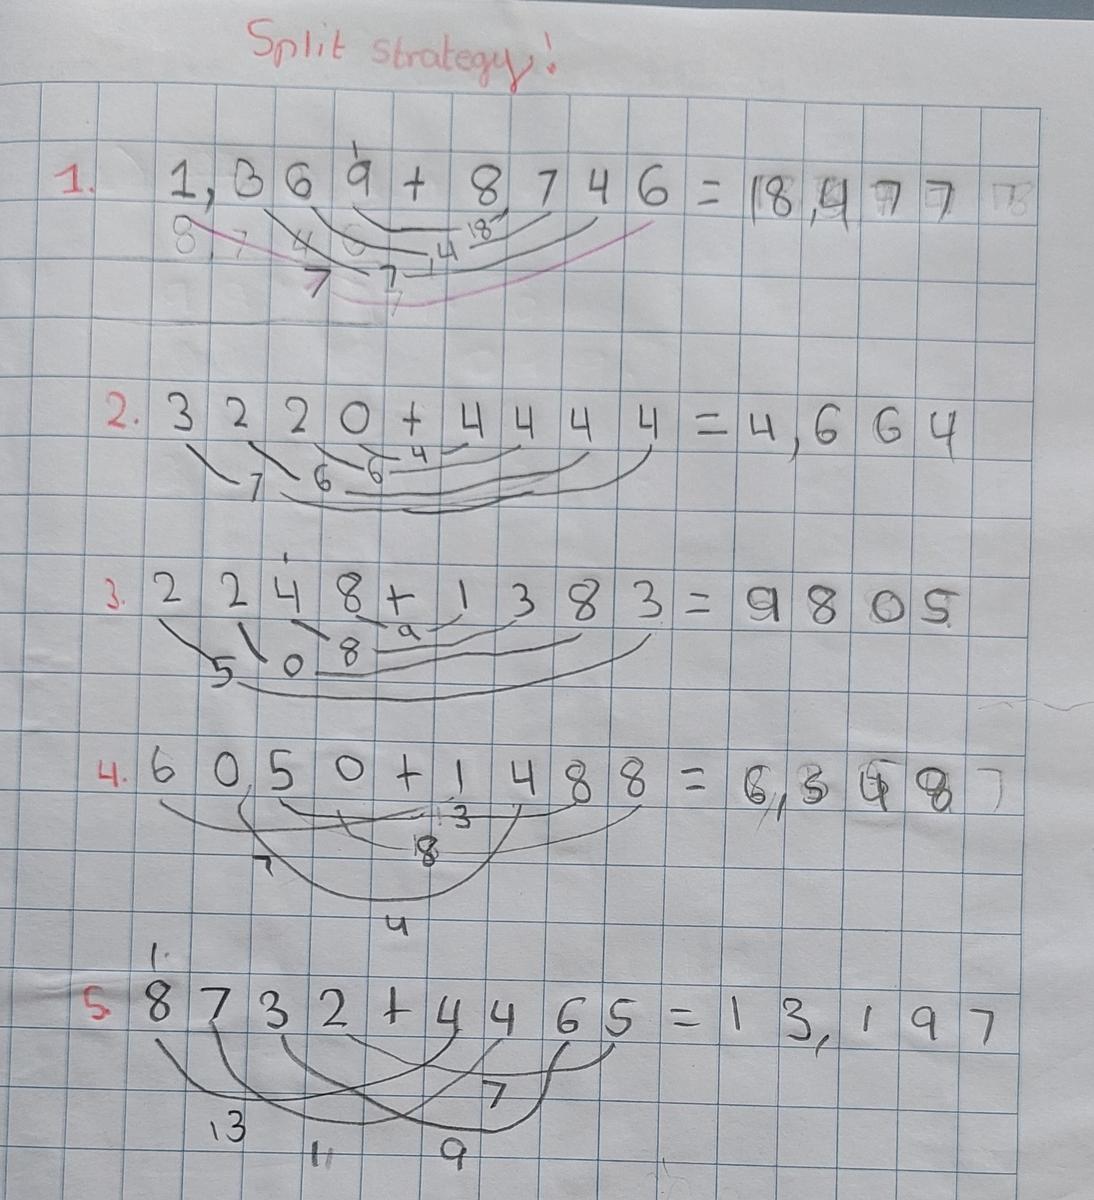 Split strategy!
1
1. 1,369 + 8,746 = 18,477
8,746
18
14
7 7
7
2. 3220 + 4444 = 4,664
4
7 6 6
1
3. 2248 + 1383 = 9805
9
8
5 0
4. 60,50 + 1488 = 6,3487
13
7 18
4
1.
5. 8732 + 4465 = 13,197
7
13
11 9